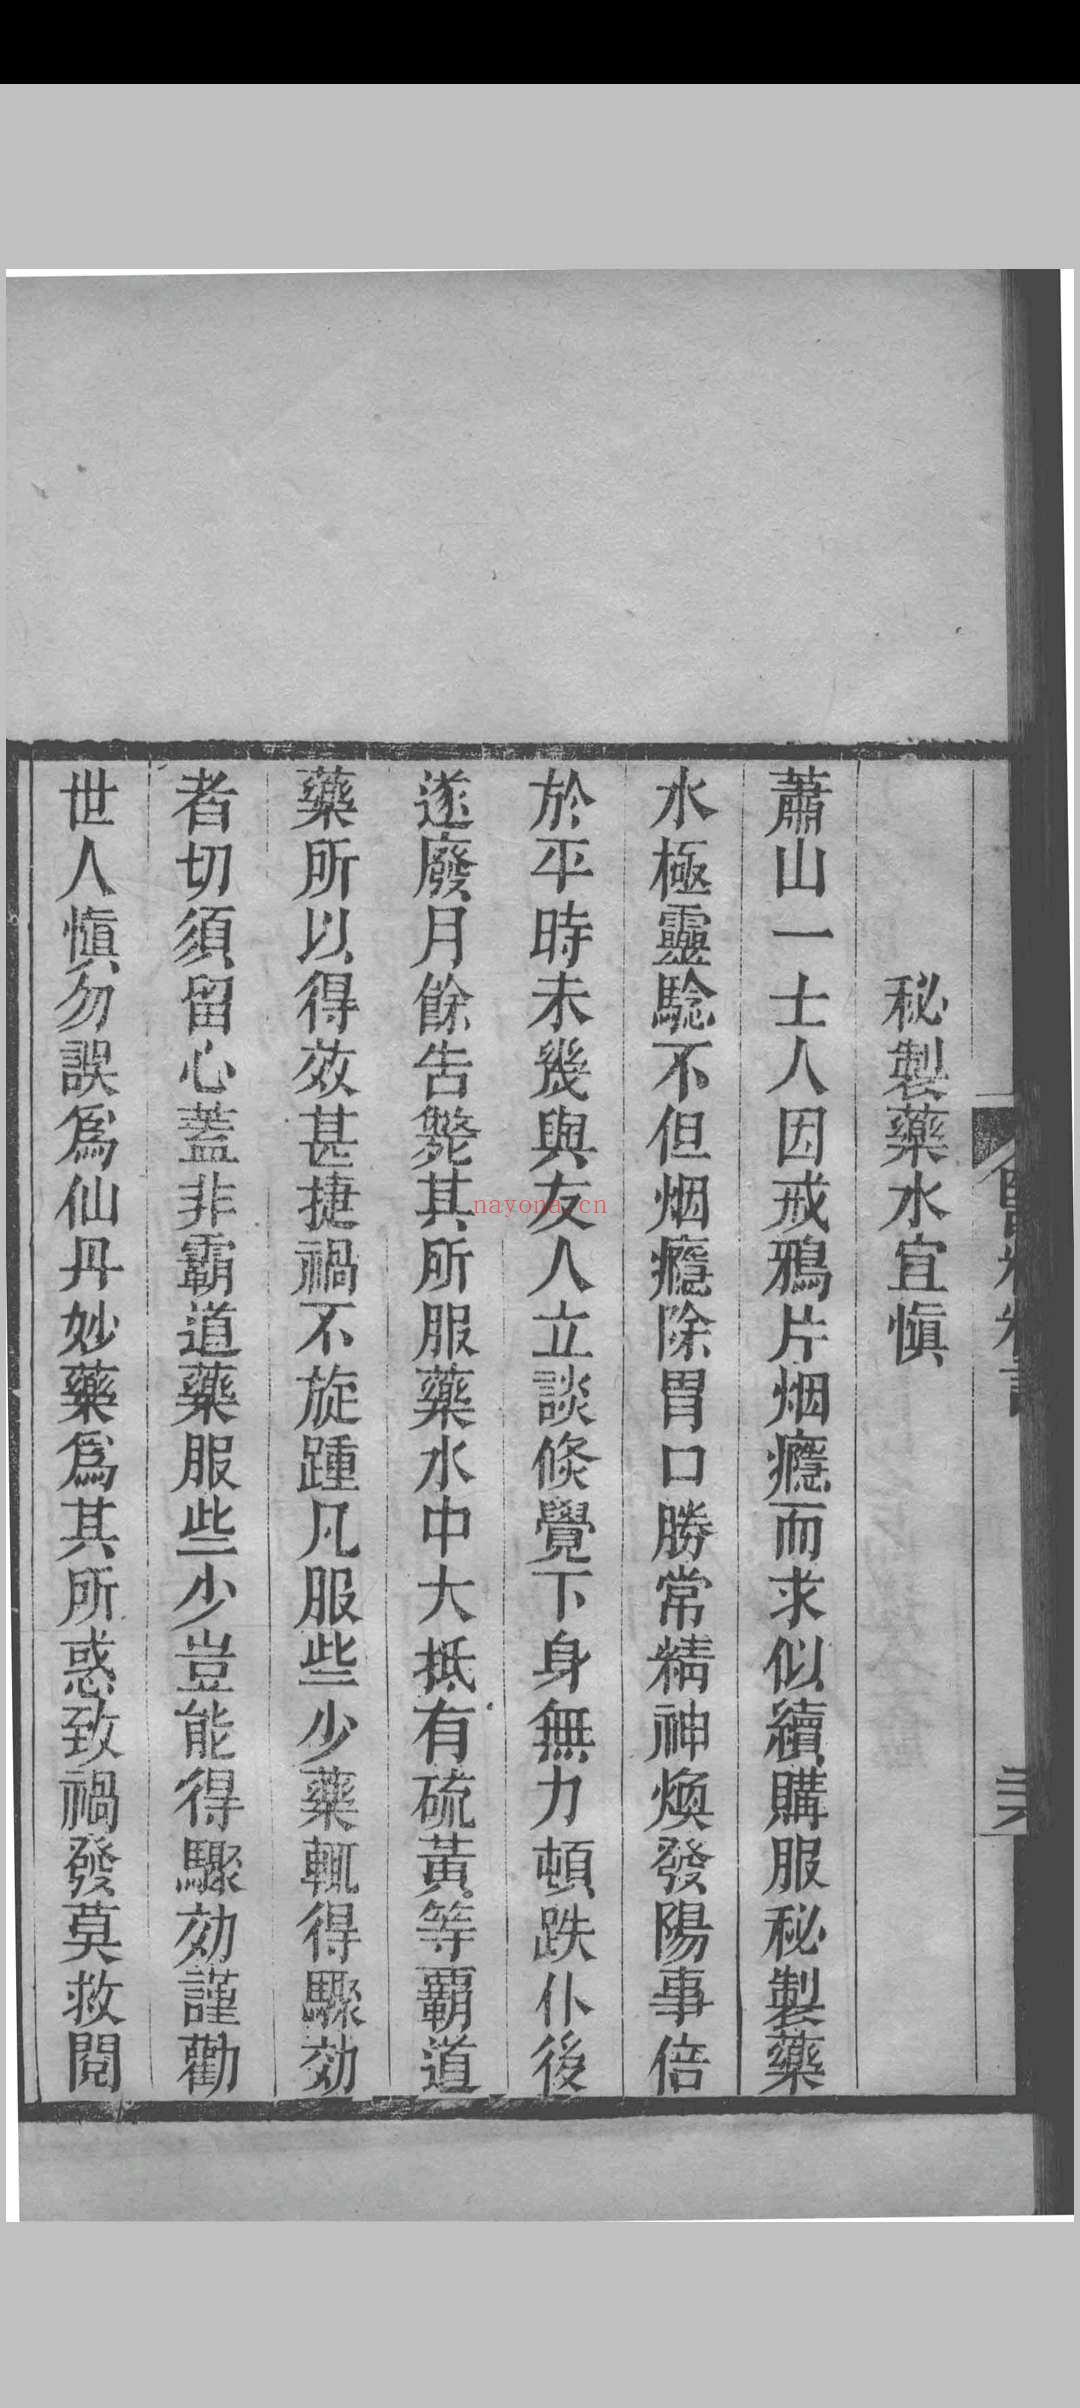 秘製藥水宜愼
蕭山一士人因戒鴉片烟癮而求似續購服秘製藥
水極靈騐不但烟癮除胃口勝常精神煥發陽事倍
於平時未幾與友人立談倏覺下身無力頓跌仆後
遂廢月餘告斃其所服藥水中大抵有硫黃等霸道
藥所以得效甚捷禍不旋踵凡服些少藥輒得驟効
者切須留心蓋非霸道藥服些少豈能得驟効謹勸
世人愼勿誤爲仙丹妙藥爲其所惑致禍發莫救閱
nayona.cn